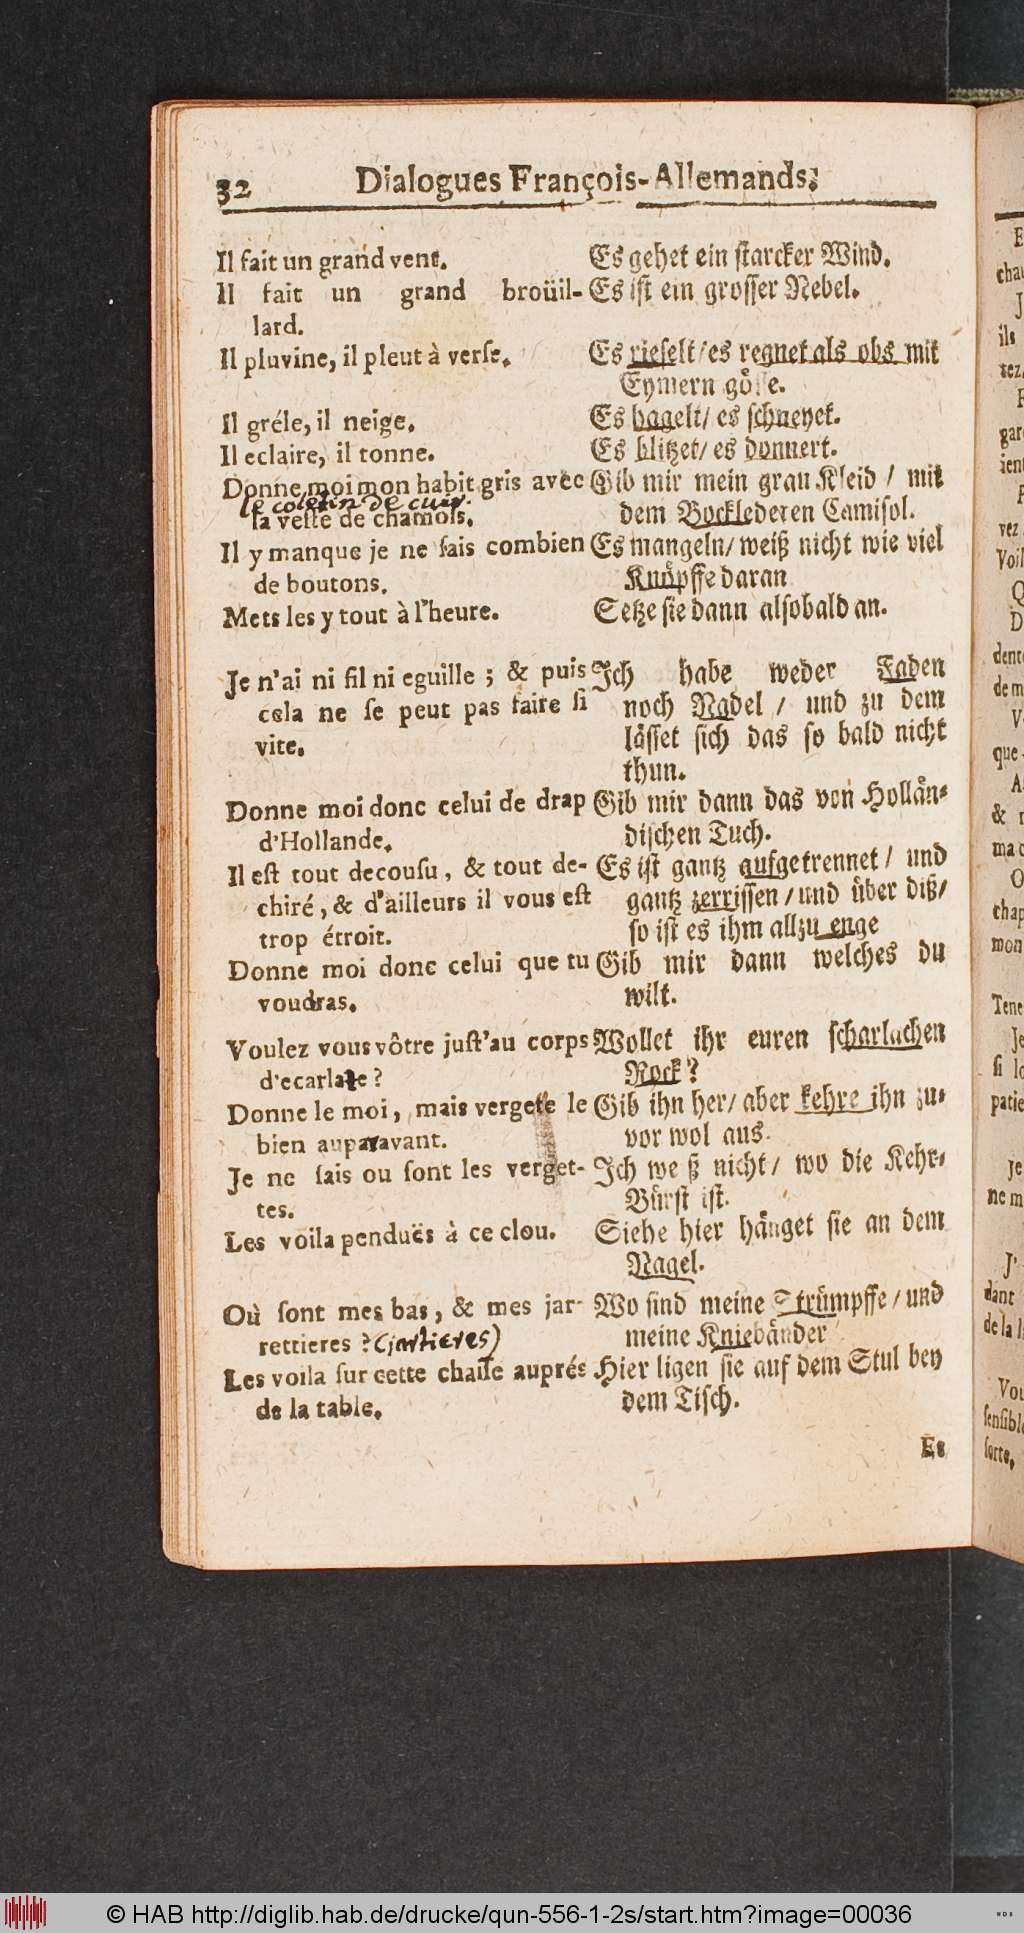 32 Dialogues François-Allemands;
Il fait un grand vent.
Il fait un grand broüil-
lard.
Il pluvine, il pleut à verſe.
Il gréle, il neige.
Il eclaire, il tonne.
Donne moi mon habit gris avec
le coletin de cuir.
la veſte de chamois.
Il y manque je ne ſais combien
de boutons.
Mets les y tout à l'heure.
Je n'ai ni fil ni eguille ; & puis
cela ne ſe peut pas faire ſi
vite.
Donne moi donc celui de drap
d'Hollande.
Il eſt tout decouſu, & tout de-
chiré, & d'ailleurs il vous eſt
trop étroit.
Donne moi donc celui que tu
voudras.
Voulez vous vôtre juſt'au corps
d'ecarlate ?
Donne le moi, mais vergete le
bien auparavant.
Je ne ſais ou ſont les verget-
tes.
Les voila penduës à ce clou.
Où ſont mes bas, & mes jar-
rettieres ? (jartieres)
Les voila ſur cette chaiſe auprés
de la table.
Es gehet ein ſtarcker Wind.
Es iſt ein groſſer Nebel.
Es rieſelt/ es regnet als obs mit
Eymern göſſe.
Es hagelt/ es ſchneyet.
Es blitzet/ es donnert.
Gib mir mein grau Kleid / mit
dem Bocklederen Camiſol.
Es mangeln/ weiß nicht wie viel
Knöpffe daran
Setze ſie dann alſobald an.
Ich habe weder Faden
noch Nadel / und zu dem
läſſet ſich das ſo bald nicht
thun.
Gib mir dann das von Hollän-
diſchen Tuch.
Es iſt gantz aufgetrennet/ und
gantz zerriſſen / und über diß/
ſo iſt es ihm allzu enge
Gib mir dann welches du
wilt.
Wollet ihr euren ſcharlachen
Rock?
Gib ihn her/ aber kehre ihn zu-
vor wol aus.
Ich we ß nicht/ wo die Kehr-
Bürſt iſt.
Siehe hier hänget ſie an dem
Nagel.
Wo ſind meine Strümpffe / und
meine Kniebänder
Hier ligen ſie auf dem Stul bey
dem Tiſch.
Es
© HAB http://diglib.hab.de/drucke/qun-556-1-2s/start.htm?image=00036